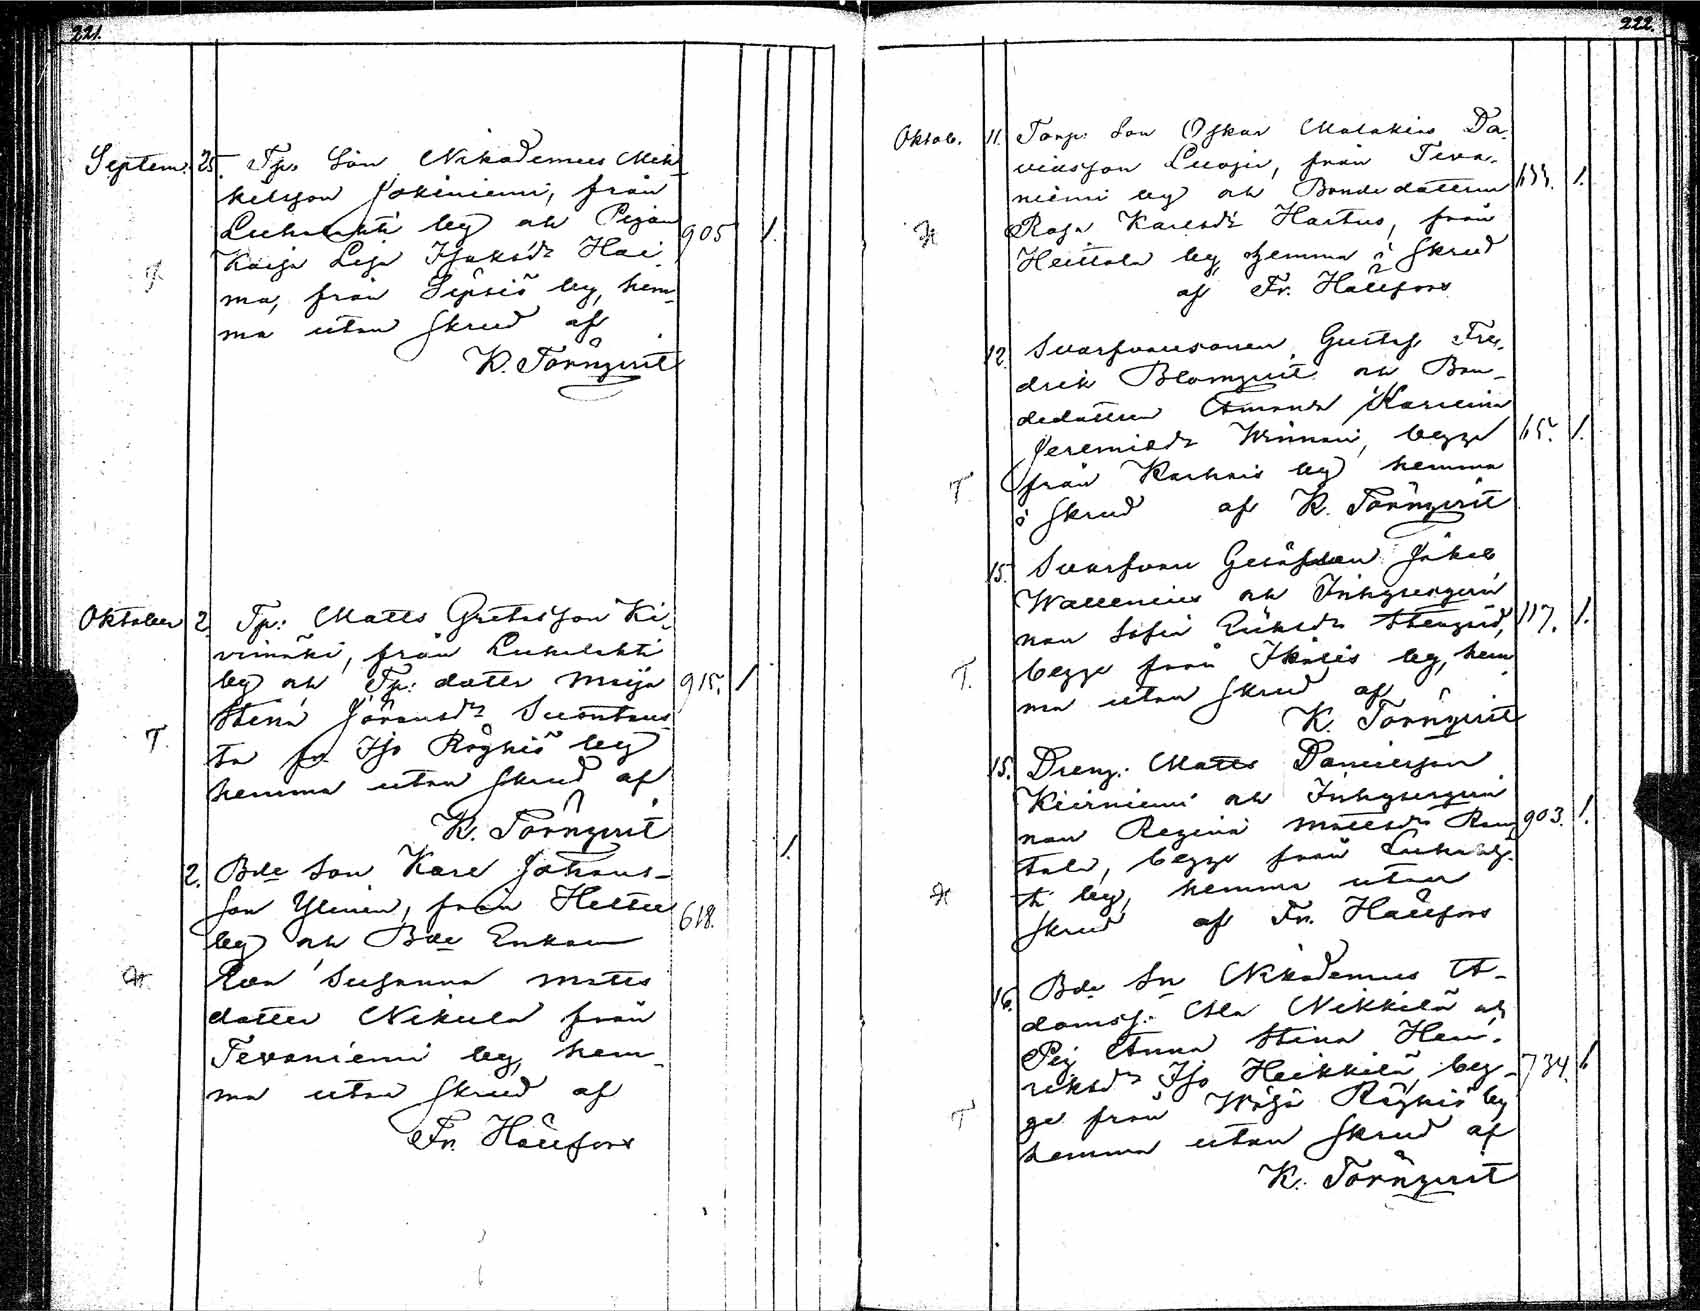 221.
Septem. 25. Tp. Son Nikodemus Mik-
kelsson Jokiniemi, från
Luhalahti by och Pigan
Kaija Lisa Isaksdr Hai
ma, från Sipsiö by, hem-
ma utan skrud af
K. Törnqvist
905 1.
Oktober 2. Tp: Matts Gretasson Ki-
vimäki, från Luhalahti
by och Tp: dotter Maija
Stina Göransdr Suontaus
ta fr. Iso Röyhiö by
hemma utan skrud af
K. Törnqvist
915. 1
T.
2. Bde Son Karl Johans-
son Ylinen, från Heittu
by och Bde Enkan
Eva Susanna Matts
dotter Nikula från
Tevaniemi by, hem-
ma utan skrud af
Fr. Hällfors
618. 1.
H
222.
Oktob. 11. Torp. Son Oskar Malakias Da-
vidsson Luoja, från Teva-
niemi by och Bondedottren
Rosa Karlsdr Hartus, från
Heittola by, hemma i skrud
af Fr. Hällfors
1.
H
12. Svarfvaresonen Gustaf Fre-
drik Blomqvist och Bon-
dedottren Amanda Karolina
Jeremiasdr begge
från Karhois by hemma
i skrud af K. Törnqvist
65. 1.
T
15. Svarfvare Gesällen Jakob
Wallenius och Inhysesqvin
nan Sofia Eriksdr Stenqvist,
begge från Ikalis by, hem
ma utan skrud af
K. Törnqvist
117. 1.
T.
15. Dreng. Matts Danielsson
Kiviniemi och Inhysesqvin
nan Regina Mattsdr Ran
tala, begge från Luhalah-
ti by, hemma utan
skrud af Fr. Hällfors
903. 1.
H
16. Bde Sn Nikodemus A-
damss. Ala Nikkilä och
Pig Anna Stina Hen-
riksdr Iso Heikkilä, beg-
ge från Wähä Röyhiö by
hemma utan skrud af
K. Törnqvist
734. 1
T